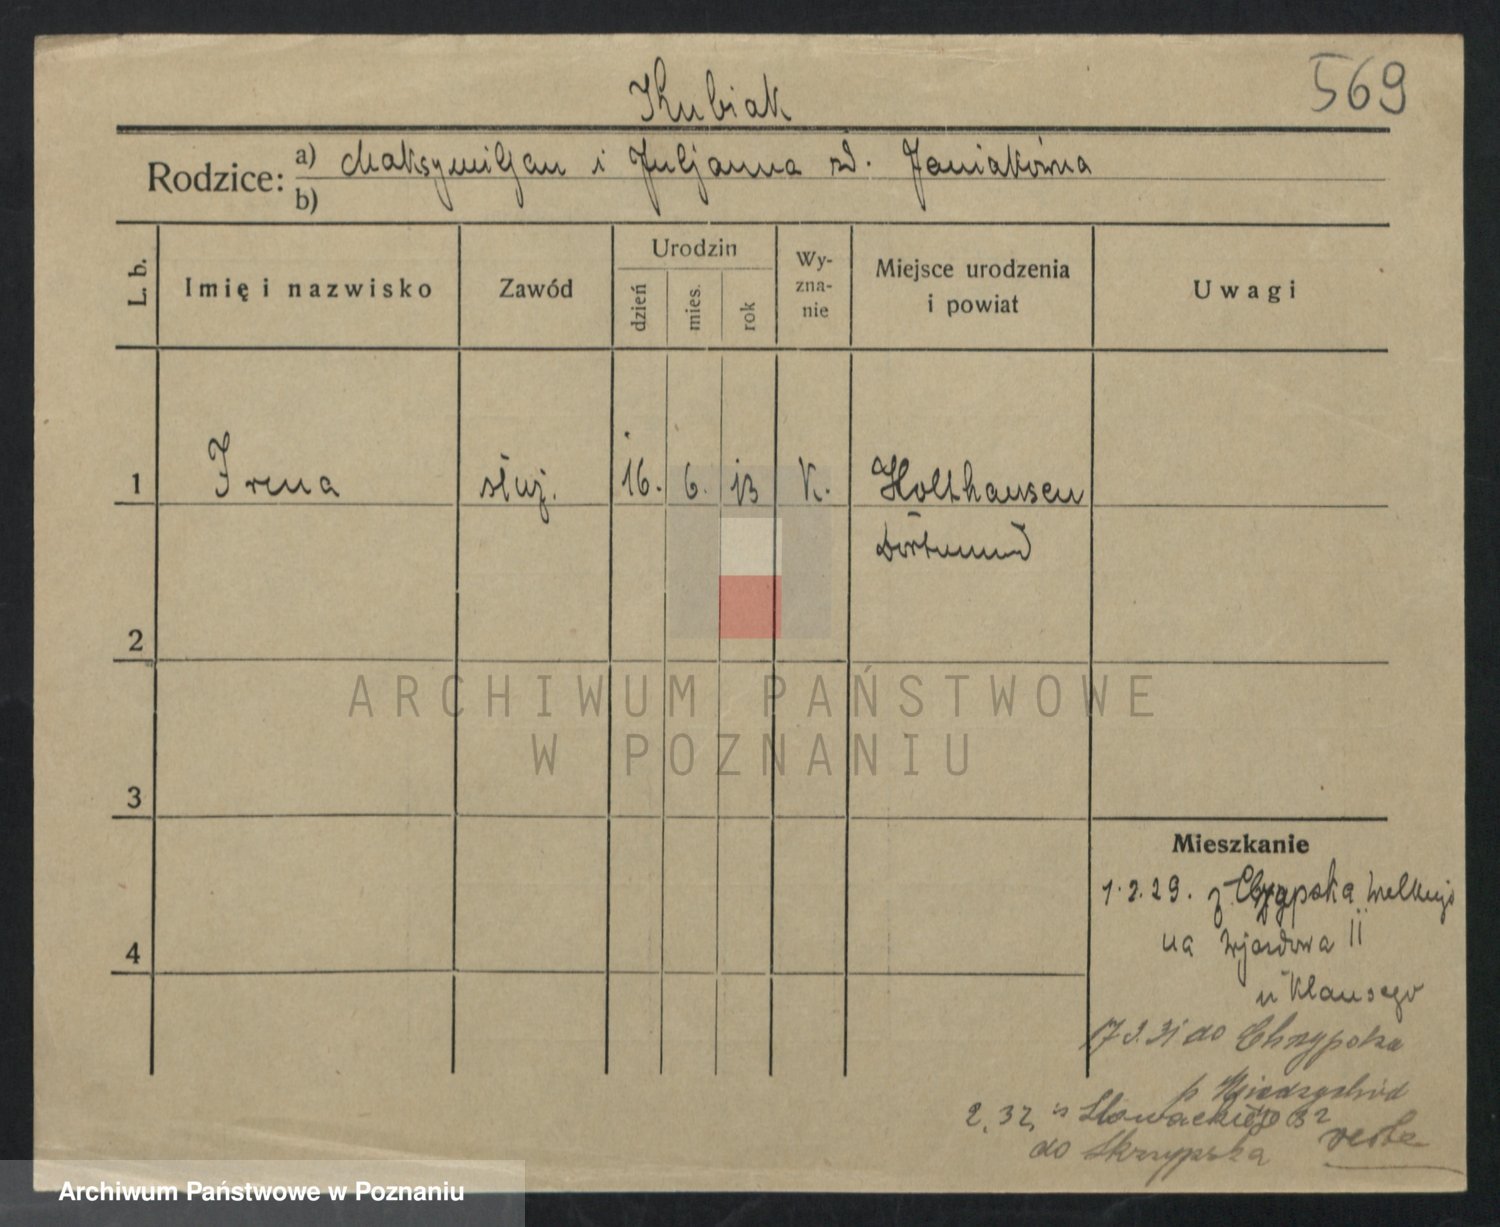 569
Kubiak
Rodzice: a) Maksymiljan i Juljanna zd. Janiakówna
b)
L. b.
Imię i nazwisko
Zawód
Urodzin
dzień
mies.
rok
Wy-
zna-
nie
Miejsce urodzenia
i powiat
Uwagi
1 Irena służ. 16. 6. 13 K. Holthausen
Dortmund
2
3
4
ARCHIWUM PAŃSTWOWE
W POZNANIU
Mieszkanie
1.2.29. z Chrzypska
na Wjazdowa 11
u Klausego
17 3.31 do Chrzypska
p Międzychód
2.32, Słowackiego 32
do Skrzypska verte
Archiwum Państwowe w Poznaniu